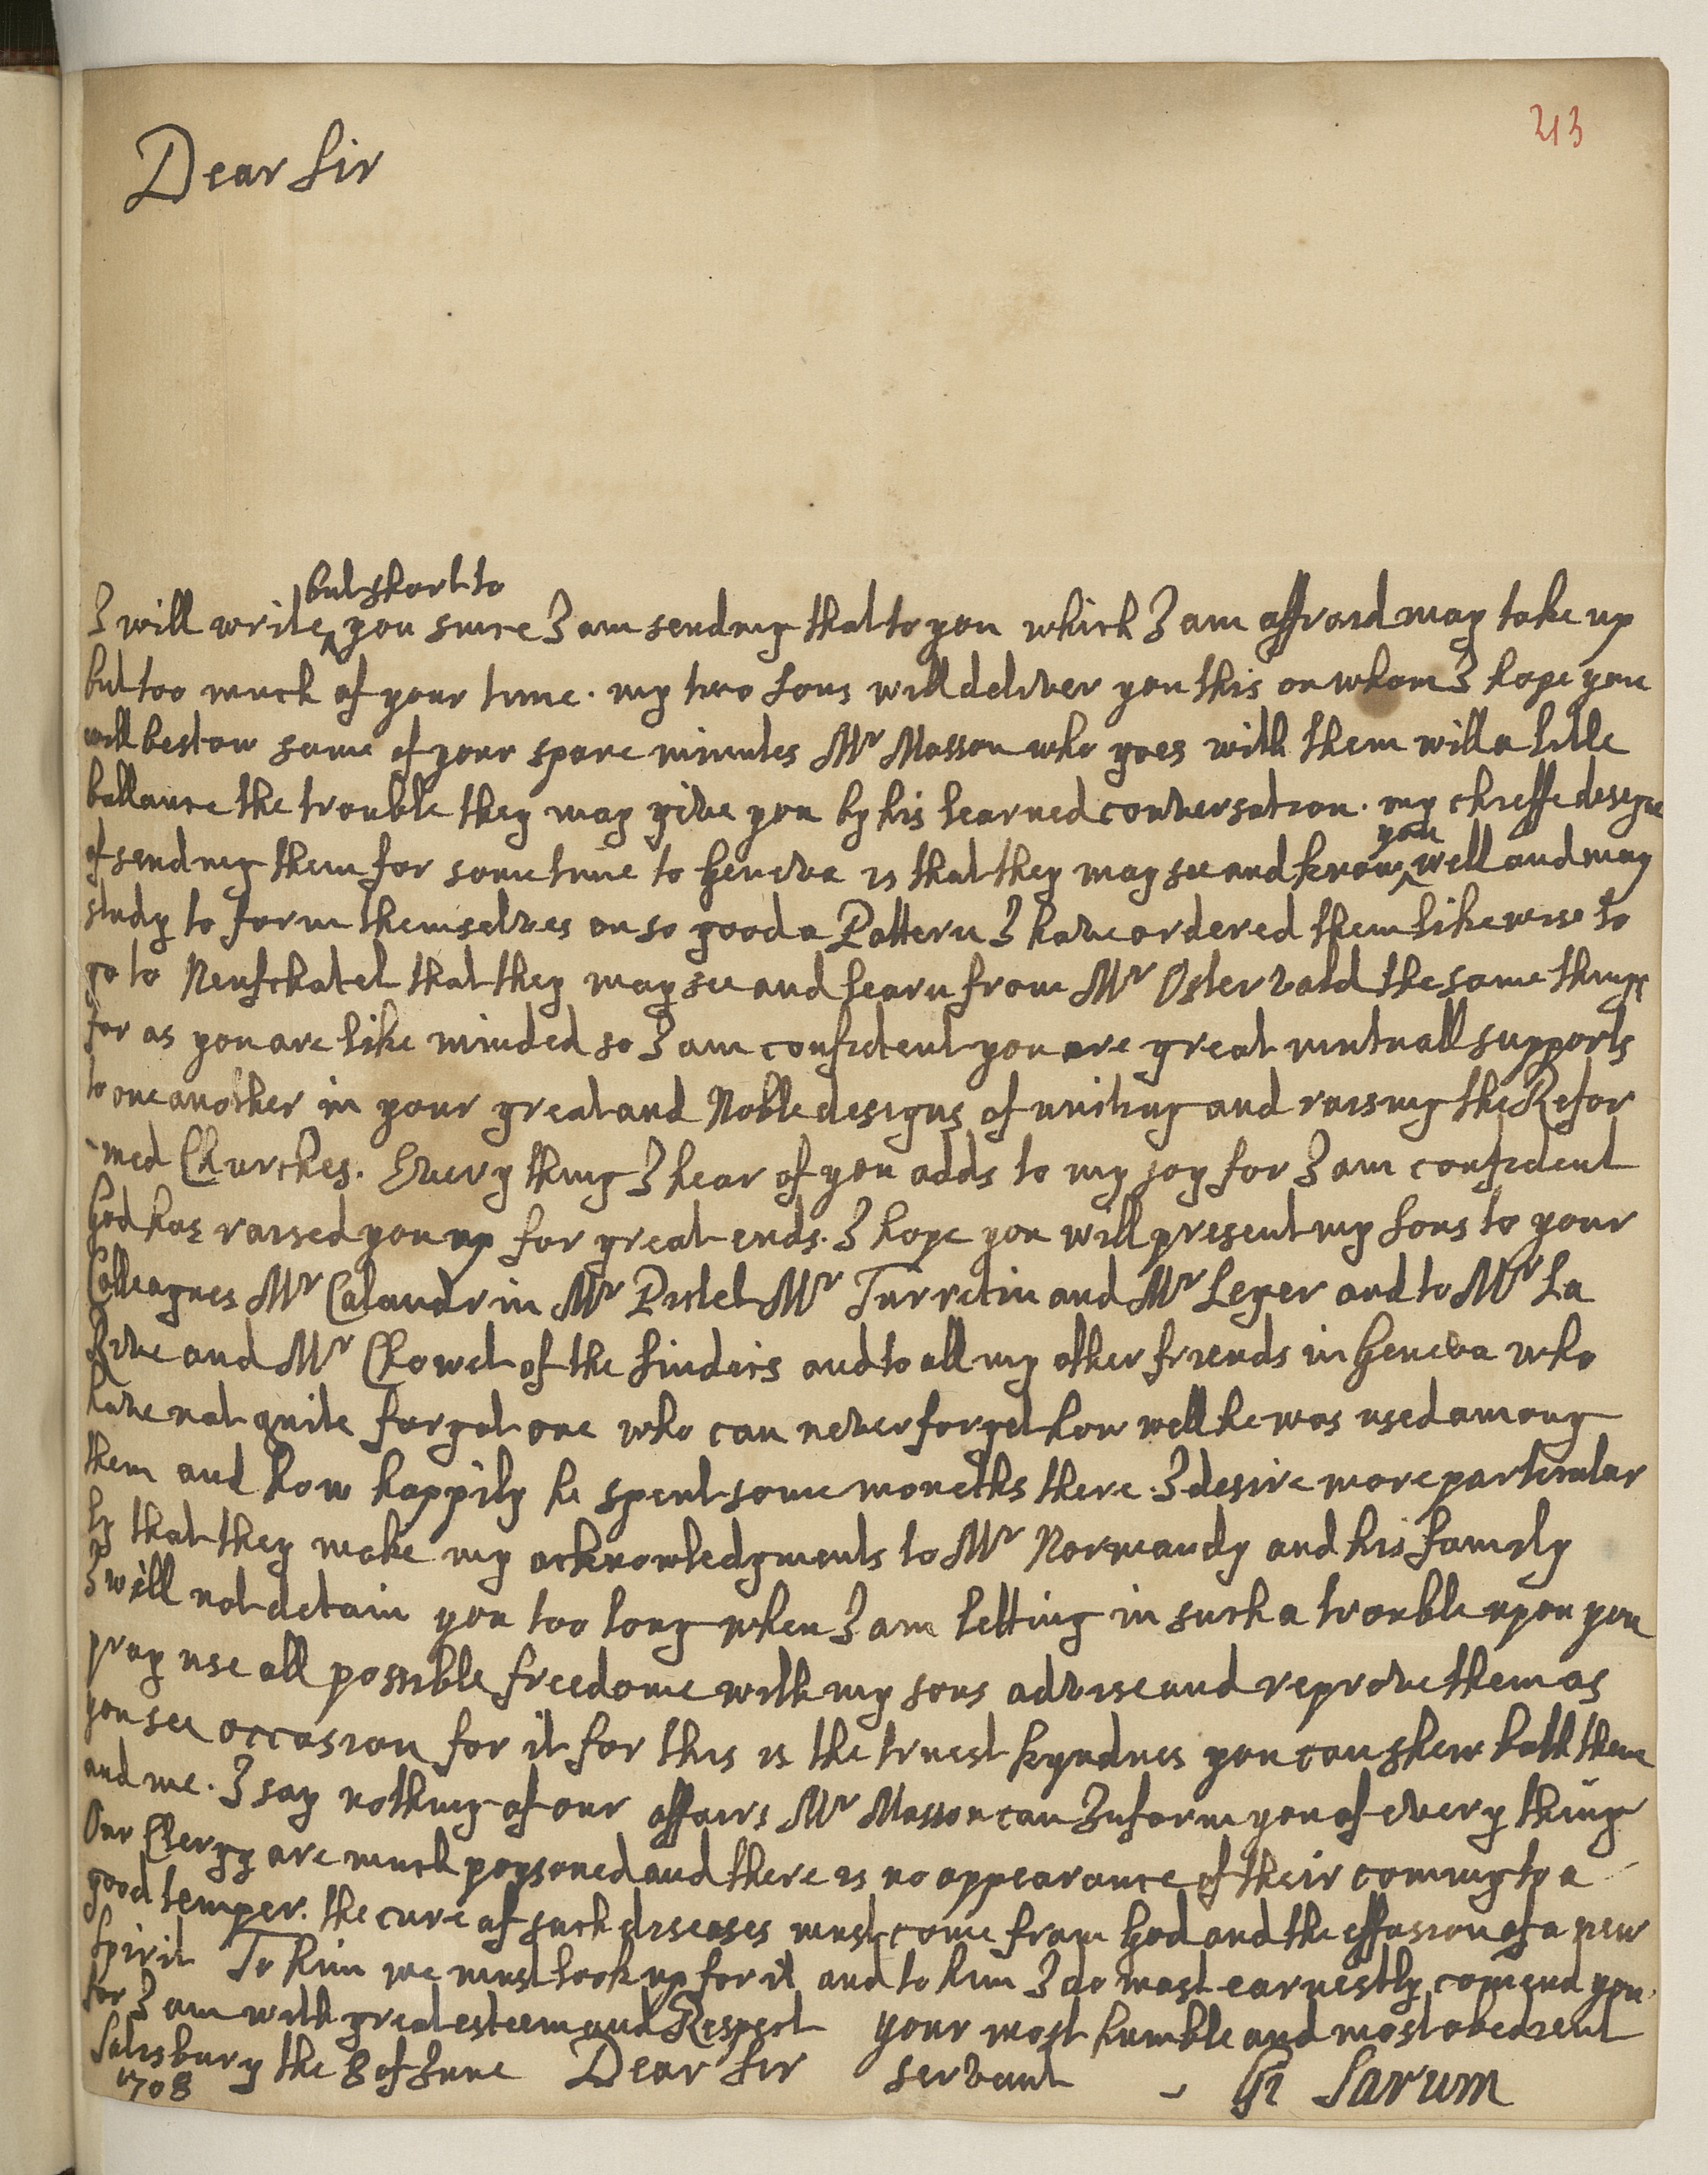 213
Dear Sir
but short to
I will write ^ you since I am sending that to you which I am affraid may take up
but too much of your time. my two Sons will deliver you this on whom I hope you
will bestow some of your spare minutes Mr Masson who goes with them will a litle
ballance the trouble they may give you by his learned conversation. my chieffe designe
you
of sending them for some time to Geneva is that they may see and know ^ well and may
study to form themselves on so good a Pattern I have ordered them likewise to
go to Neufchatel that they may see and learn from Mr Ostervald the same things
for as you are like minded so I am confident you are great mutuall supports
to one another in your great and Noble designs of uniting and raising the Refor
-med Churches. Every thing I hear of you adds to my joy for I am confident
God has raised you up for great ends. I hope you will present my Sons to your
Colleagues Mr Calandrin Mr Pictet Mr Turretin and Mr Leger and to Mr La
Rive and Mr Chowet of the Sindics and to all my other friends in Geneva who
have not quite forgot one who can never forget how well he was used among
them and how happily he spent some moneths there. I desire more particular
ly that they make my acknowledgments to Mr Normandy and his family
I will not detain you too long when I am letting in such a trouble upon you
pray use all possible freedome with my sons advise and reprove them as
you see occasion for it for this is the truest kyndnes you can shew both them
and me. I say nothing of our affairs Mr Masson can Inform you of every thing
Our Clergy are much poysoned and there is no appearance of their coming to a
good temper. the cure of such diseases must come from God and the effusion of a new
Spirit To him we must look up for it and to him I do most earnestly comend you.
for I am with great esteem and Respect your most humble and most obedient
Salisbury the 8 of June Dear Sir servant - Gi Sarum
1708